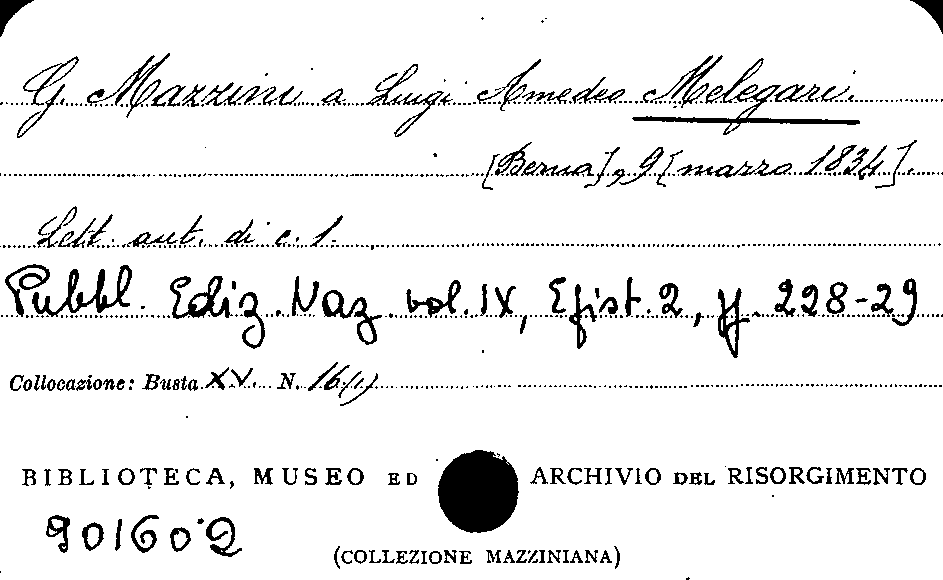 G. Mazzini a Luigi Amedeo Melegari.
[Berna], 9 [marzo 1834].
Lett. aut. di c. 1.
Pubbl. Ediz. Naz. vol. IX, Epist. 2, pp. 228-29
Collocazione: Busta XV. N. 16/1)
BIBLIOTECA, MUSEO ED ARCHIVIO DEL RISORGIMENTO
90160'2
(COLLEZIONE MAZZINIANA)